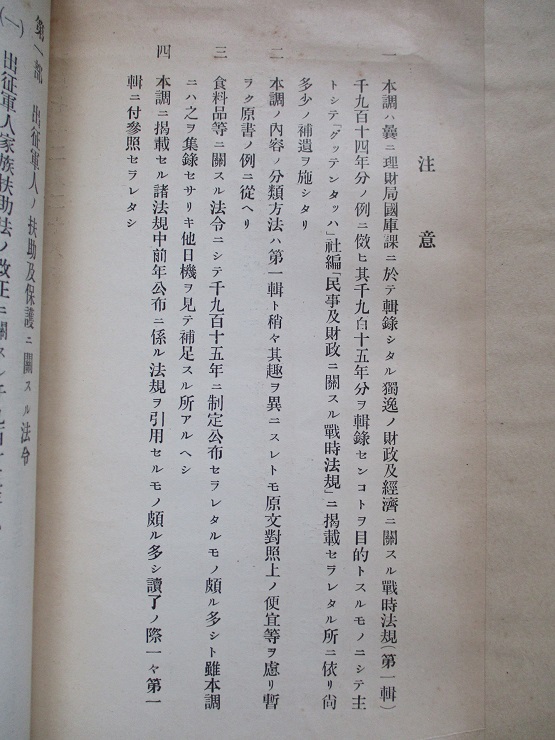 注意
一 本調ハ曩ニ理財局國庫課ニ於テ輯錄シタル獨逸ノ財政及經濟ニ關スル戰時法規(第一輯)
千九百十四年分ノ例ニ倣ヒ其千九百十五年分ヲ輯錄センコトヲ目的トスルモノニシテ主
トシテ「グッテンタッハ」社編「民事及財政ニ關スル戰時法規」ニ揭載セラレタル所ニ依リ尙
多少ノ補遺ヲ施シタリ
二 本調ノ內容ノ分類方法ハ第一輯ト稍々其趣ヲ異ニスレトモ原文對照上ノ便宜等ヲ慮リ暫
ラク原書ノ例ニ從ヘリ
三 食料品等ニ關スル法令ニシテ千九百十五年ニ制定公布セラレタルモノ頗ル多シト雖本調
ニハ之ヲ集錄セサリキ他日機ヲ見テ補足スル所アルヘシ
四 本調ニ揭載セル諸法規中前年公布ニ係ル法規ヲ引用セルモノ頗ル多シ讀了ノ際一々第一
輯ニ付參照セラレタシ
第一部 出征軍人ノ扶助及保護ニ關スル法令
(一) 出征軍人家族扶助法ノ改正ニ關スル